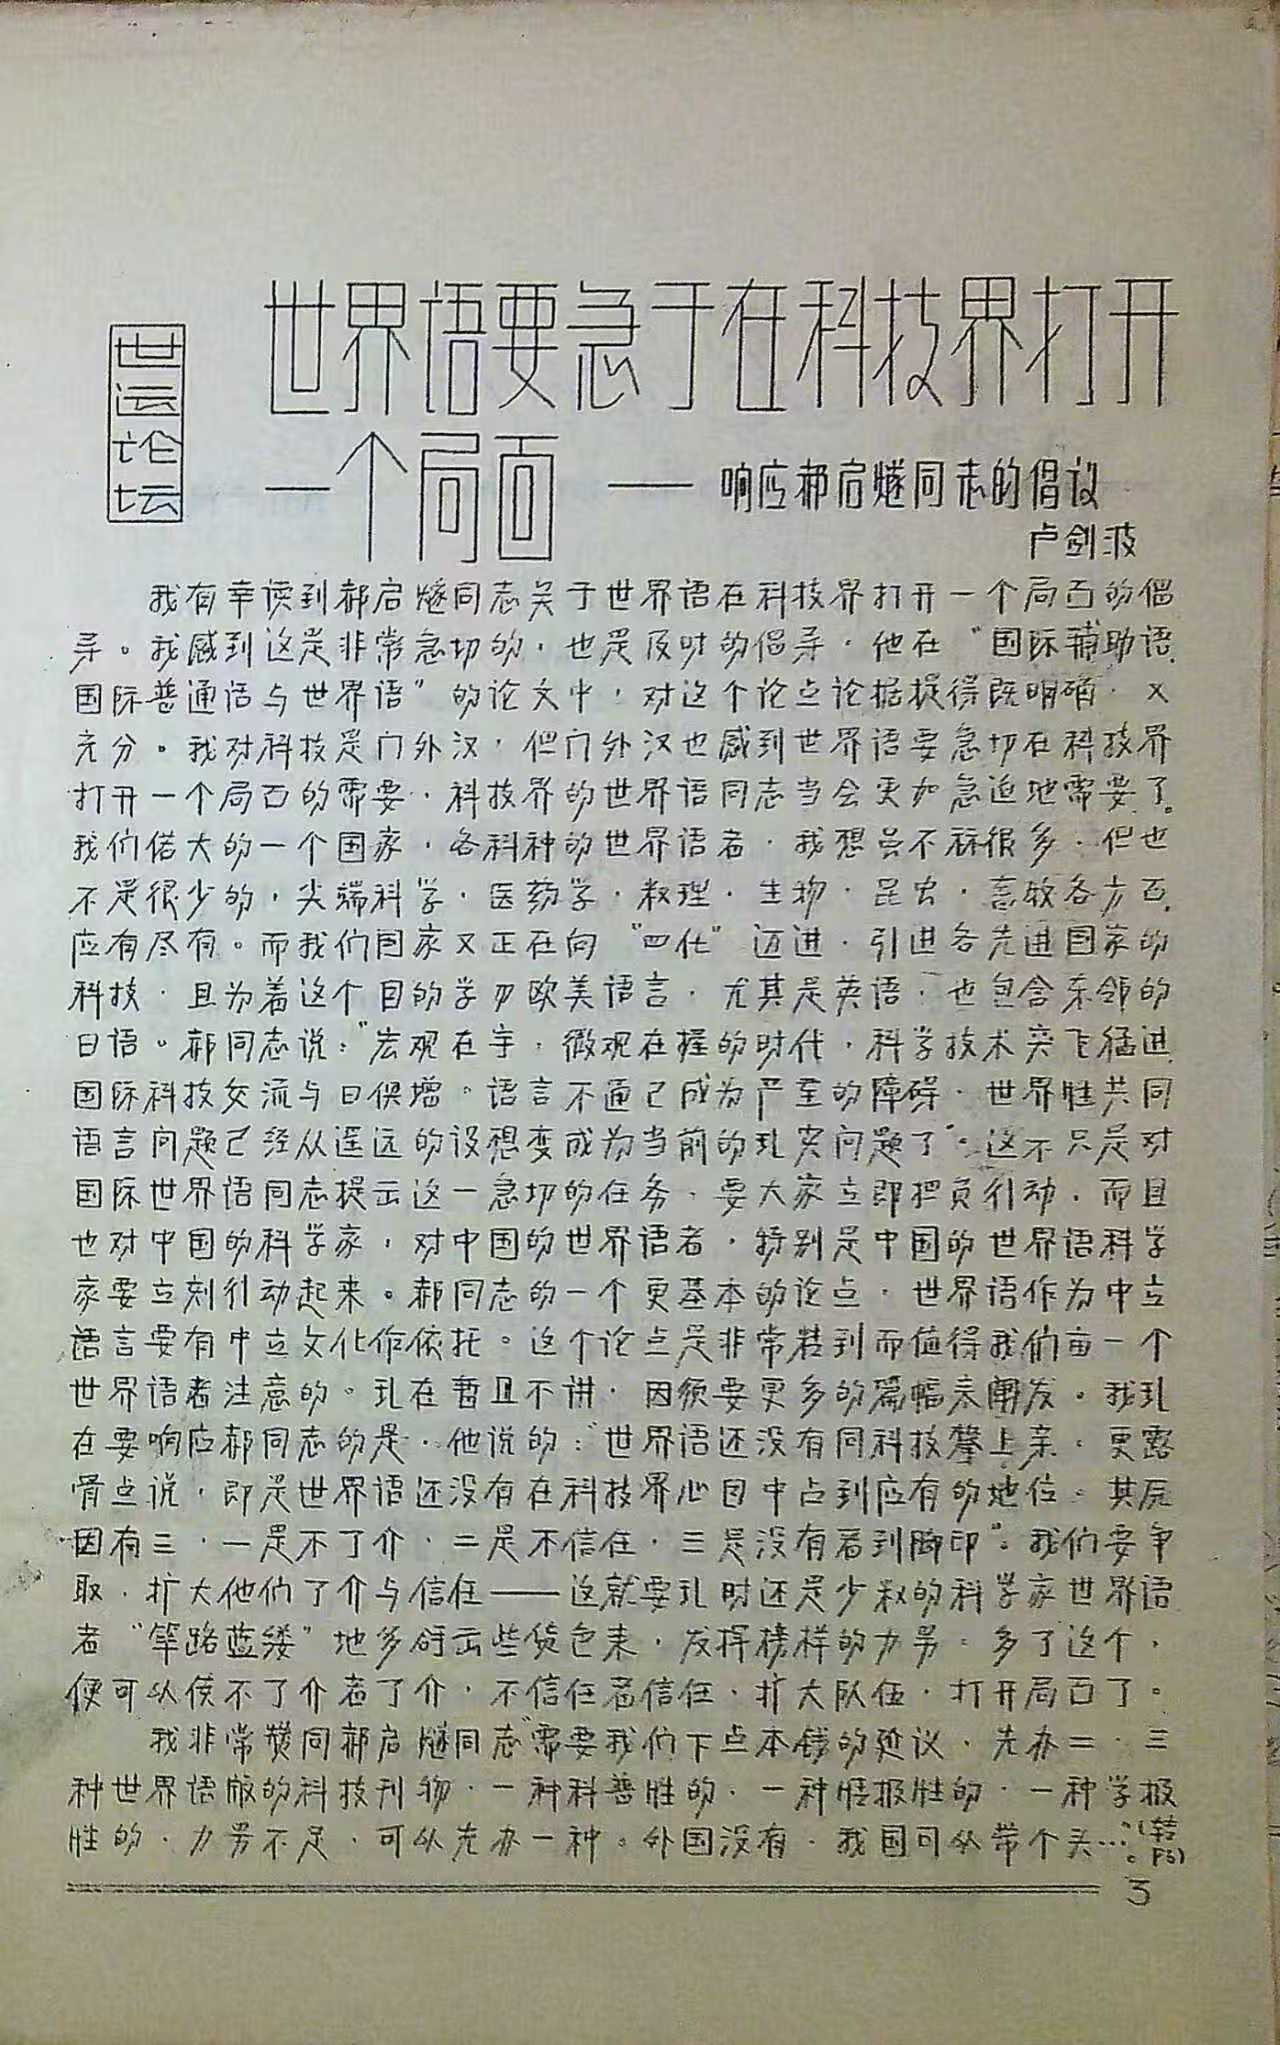 世运论坛
世界语要急于在科技界打开
一个局面——响应郝启燧同志的倡议
卢剑波
我有幸读到郝启燧同志关于世界语在科技界打开一个局面的倡
导。我感到这是非常急切的，也是及时的倡导，他在“国际辅助语，
国际普通话与世界语”的论文中，对这个论点论据提得既明确，又
充分。我对科技是门外汉，但门外汉也感到世界语要急切在科技界
打开一个局面的需要，科技界的世界语同志当会更加急迫地需要了。
我们偌大的一个国家，各科种的世界语者，我想虽不称很多，但也
不是很少的，尖端科学，医药学，数理，生物，昆虫，言教各方面，
应有尽有。而我们国家又正在向“四化”迈进，引进各先进国家的
科技，且为着这个目的学习欧美语言，尤其是英语，也包含东邻的
日语。郝同志说：“宏观在宇，微观在握的时代，科学技术突飞猛进，
国际科技交流与日俱增。语言不通已成为严重的障碍，世界性共同
语言问题已经从遥远的设想变成为当前的现实问题了”。这不只是对
国际世界语同志提示这一急切的任务，要大家立即把负行动，而且
也对中国的科学家，对中国的世界语者，特别是中国的世界语科学
家要立刻行动起来。郝同志的一个更基本的论点，世界语作为中立
语言要有中立文化作依托。这个论点是非常精到而值得我们每一个
世界语者注意的。现在暂且不讲，因须要更多的篇幅来阐发。我现
在要响应郝同志的是，他说的：“世界语还没有同科技攀上亲，更露
骨点说，即是世界语还没有在科技界心目中占到应有的地位。其原
因有三，一是不了介，二是不信任，三是没有看到脚印”。我们要争
取，扩大他们了介与信任——这就要现时还是少数的科学家世界语
者“筚路蓝缕”地多研出些货色来，发挥榜样的力量。多了这个，
便可以使不了介者了介，不信任者信任，扩大队伍，打开局面了。
我非常赞同郝启燧同志“需要我们下点本钱的建议，先办二、三
种世界语版的科技刊物，一种科普性的，一种情报性的，一种学报
性的，力量不足，可以先办一种。外国没有，我国可以带个头…”。（转
P5）
3